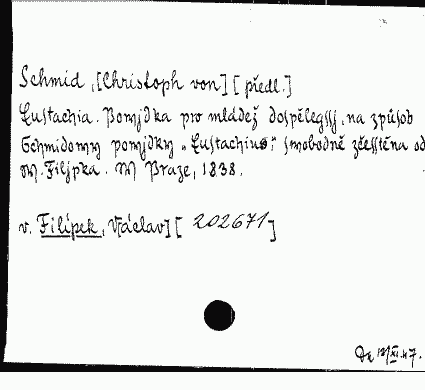 Schmid, [Christoph von] [předl.]
Eustachia. Powjdka pro mládež dospělegssj, na způsob
Schmidowy powjdky „Eustachius," swobodně zčesstěna od
W. Filjpka. W Praze, 1838.
v. Filípek, V[áclav] [202671]